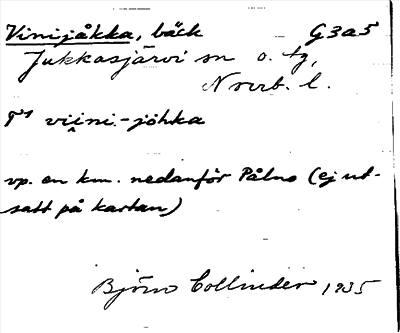 Vinijåkka, bäck G3a5
Jukkasjärvi sn o. tg,
Norrb. l.
viini-jåhka
vp. en km. nedanför Pålno (ej ut-
satt på kartan)
Björn Collinder 1935